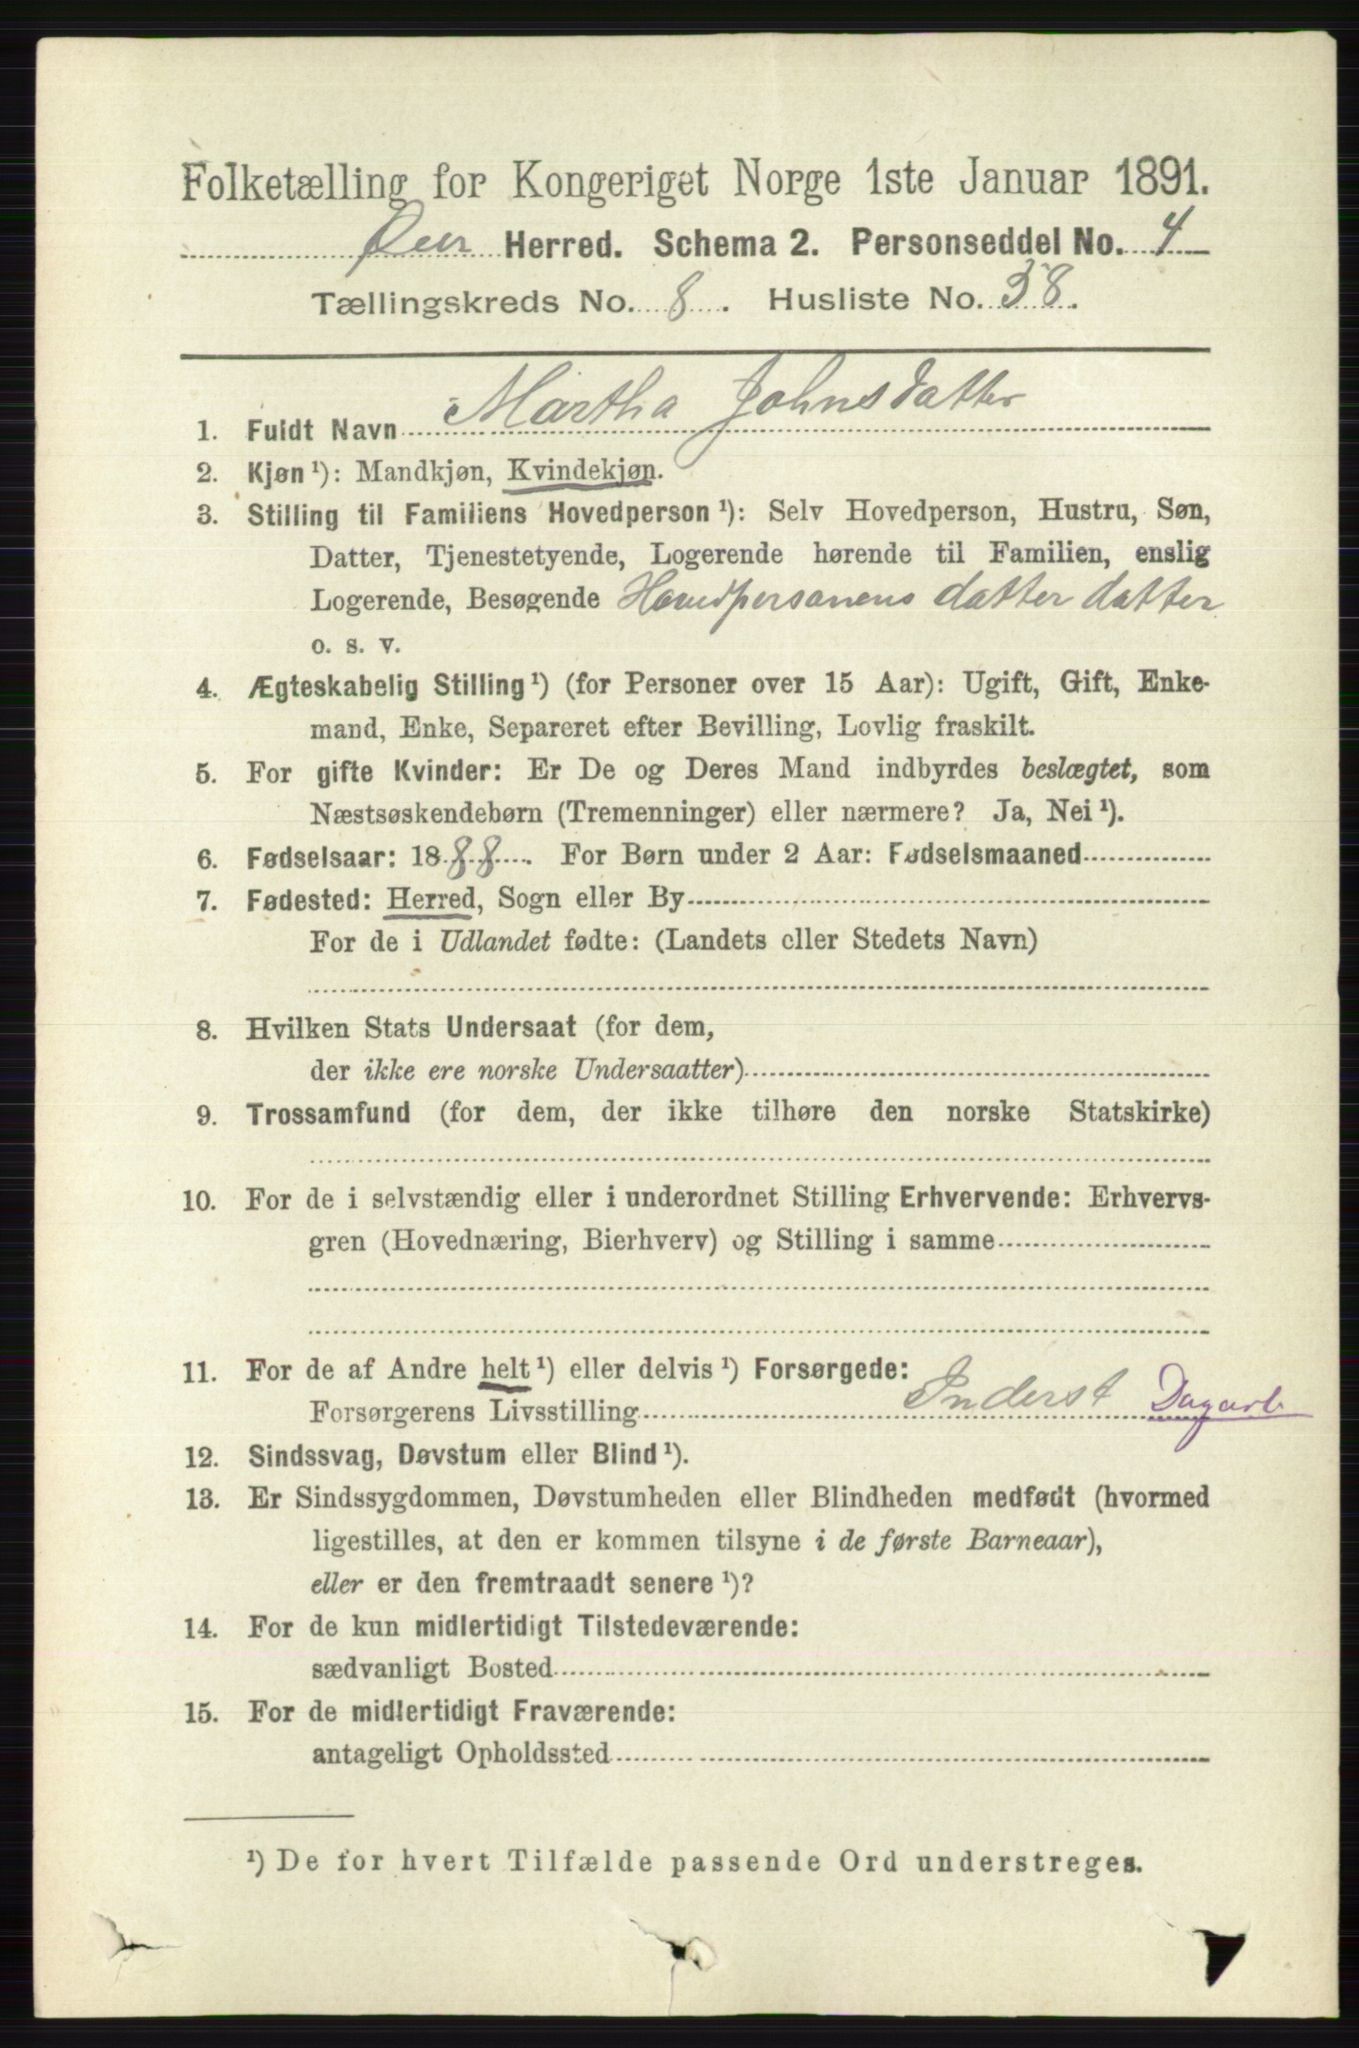 Folketælling for Kongeriget Norge 1ste Januar 1891.
Øier Herred. Schema 2. Personseddel No. 4
Tællingskreds No. 8. Husliste No. 38.
1. Fuldt Navn Martha Johnsdatter
2. Kjøn¹): Mandkjøn, Kvindekjøn.
3. Stilling til Familiens Hovedperson¹): Selv Hovedperson, Hustru, Søn,
Datter, Tjenestetyende, Logerende hørende til Familien, enslig
Logerende, Besøgende Hovedpersonens datter datter
o. s. v.
4. Ægteskabelig Stilling¹) (for Personer over 15 Aar): Ugift, Gift, Enke-
mand, Enke, Separeret efter Bevilling, Lovlig fraskilt.
5. For gifte Kvinder: Er De og Deres Mand indbyrdes beslægtet, som
Næstsøskendebørn (Tremenninger) eller nærmere? Ja, Nei¹).
6. Fødselsaar: 1888. For Børn under 2 Aar: Fødselsmaaned
7. Fødested: Herred, Sogn eller By
For de i Udlandet fødte: (Landets eller Stedets Navn)
8. Hvilken Stats Undersaat (for dem,
der ikke ere norske Undersaatter)
9. Trossamfund (for dem, der ikke tilhøre den norske Statskirke)
10. For de i selvstændig eller i underordnet Stilling Erhvervende: Erhvervs-
gren (Hovednæring, Bierhverv) og Stilling i samme
11. For de af Andre helt¹) eller delvis¹) Forsørgede:
Forsørgerens Livsstilling Inderst Dagarb.
12. Sindssvag, Døvstum eller Blind¹).
13. Er Sindssygdommen, Døvstumheden eller Blindheden medfødt (hvormed
ligestilles, at den er kommen tilsyne i de første Barneaar),
eller er den fremtraadt senere¹)?
14. For de kun midlertidigt Tilstedeværende:
sædvanligt Bosted
15. For de midlertidigt Fraværende:
antageligt Opholdssted
¹) De for hvert Tilfælde passende Ord understreges.